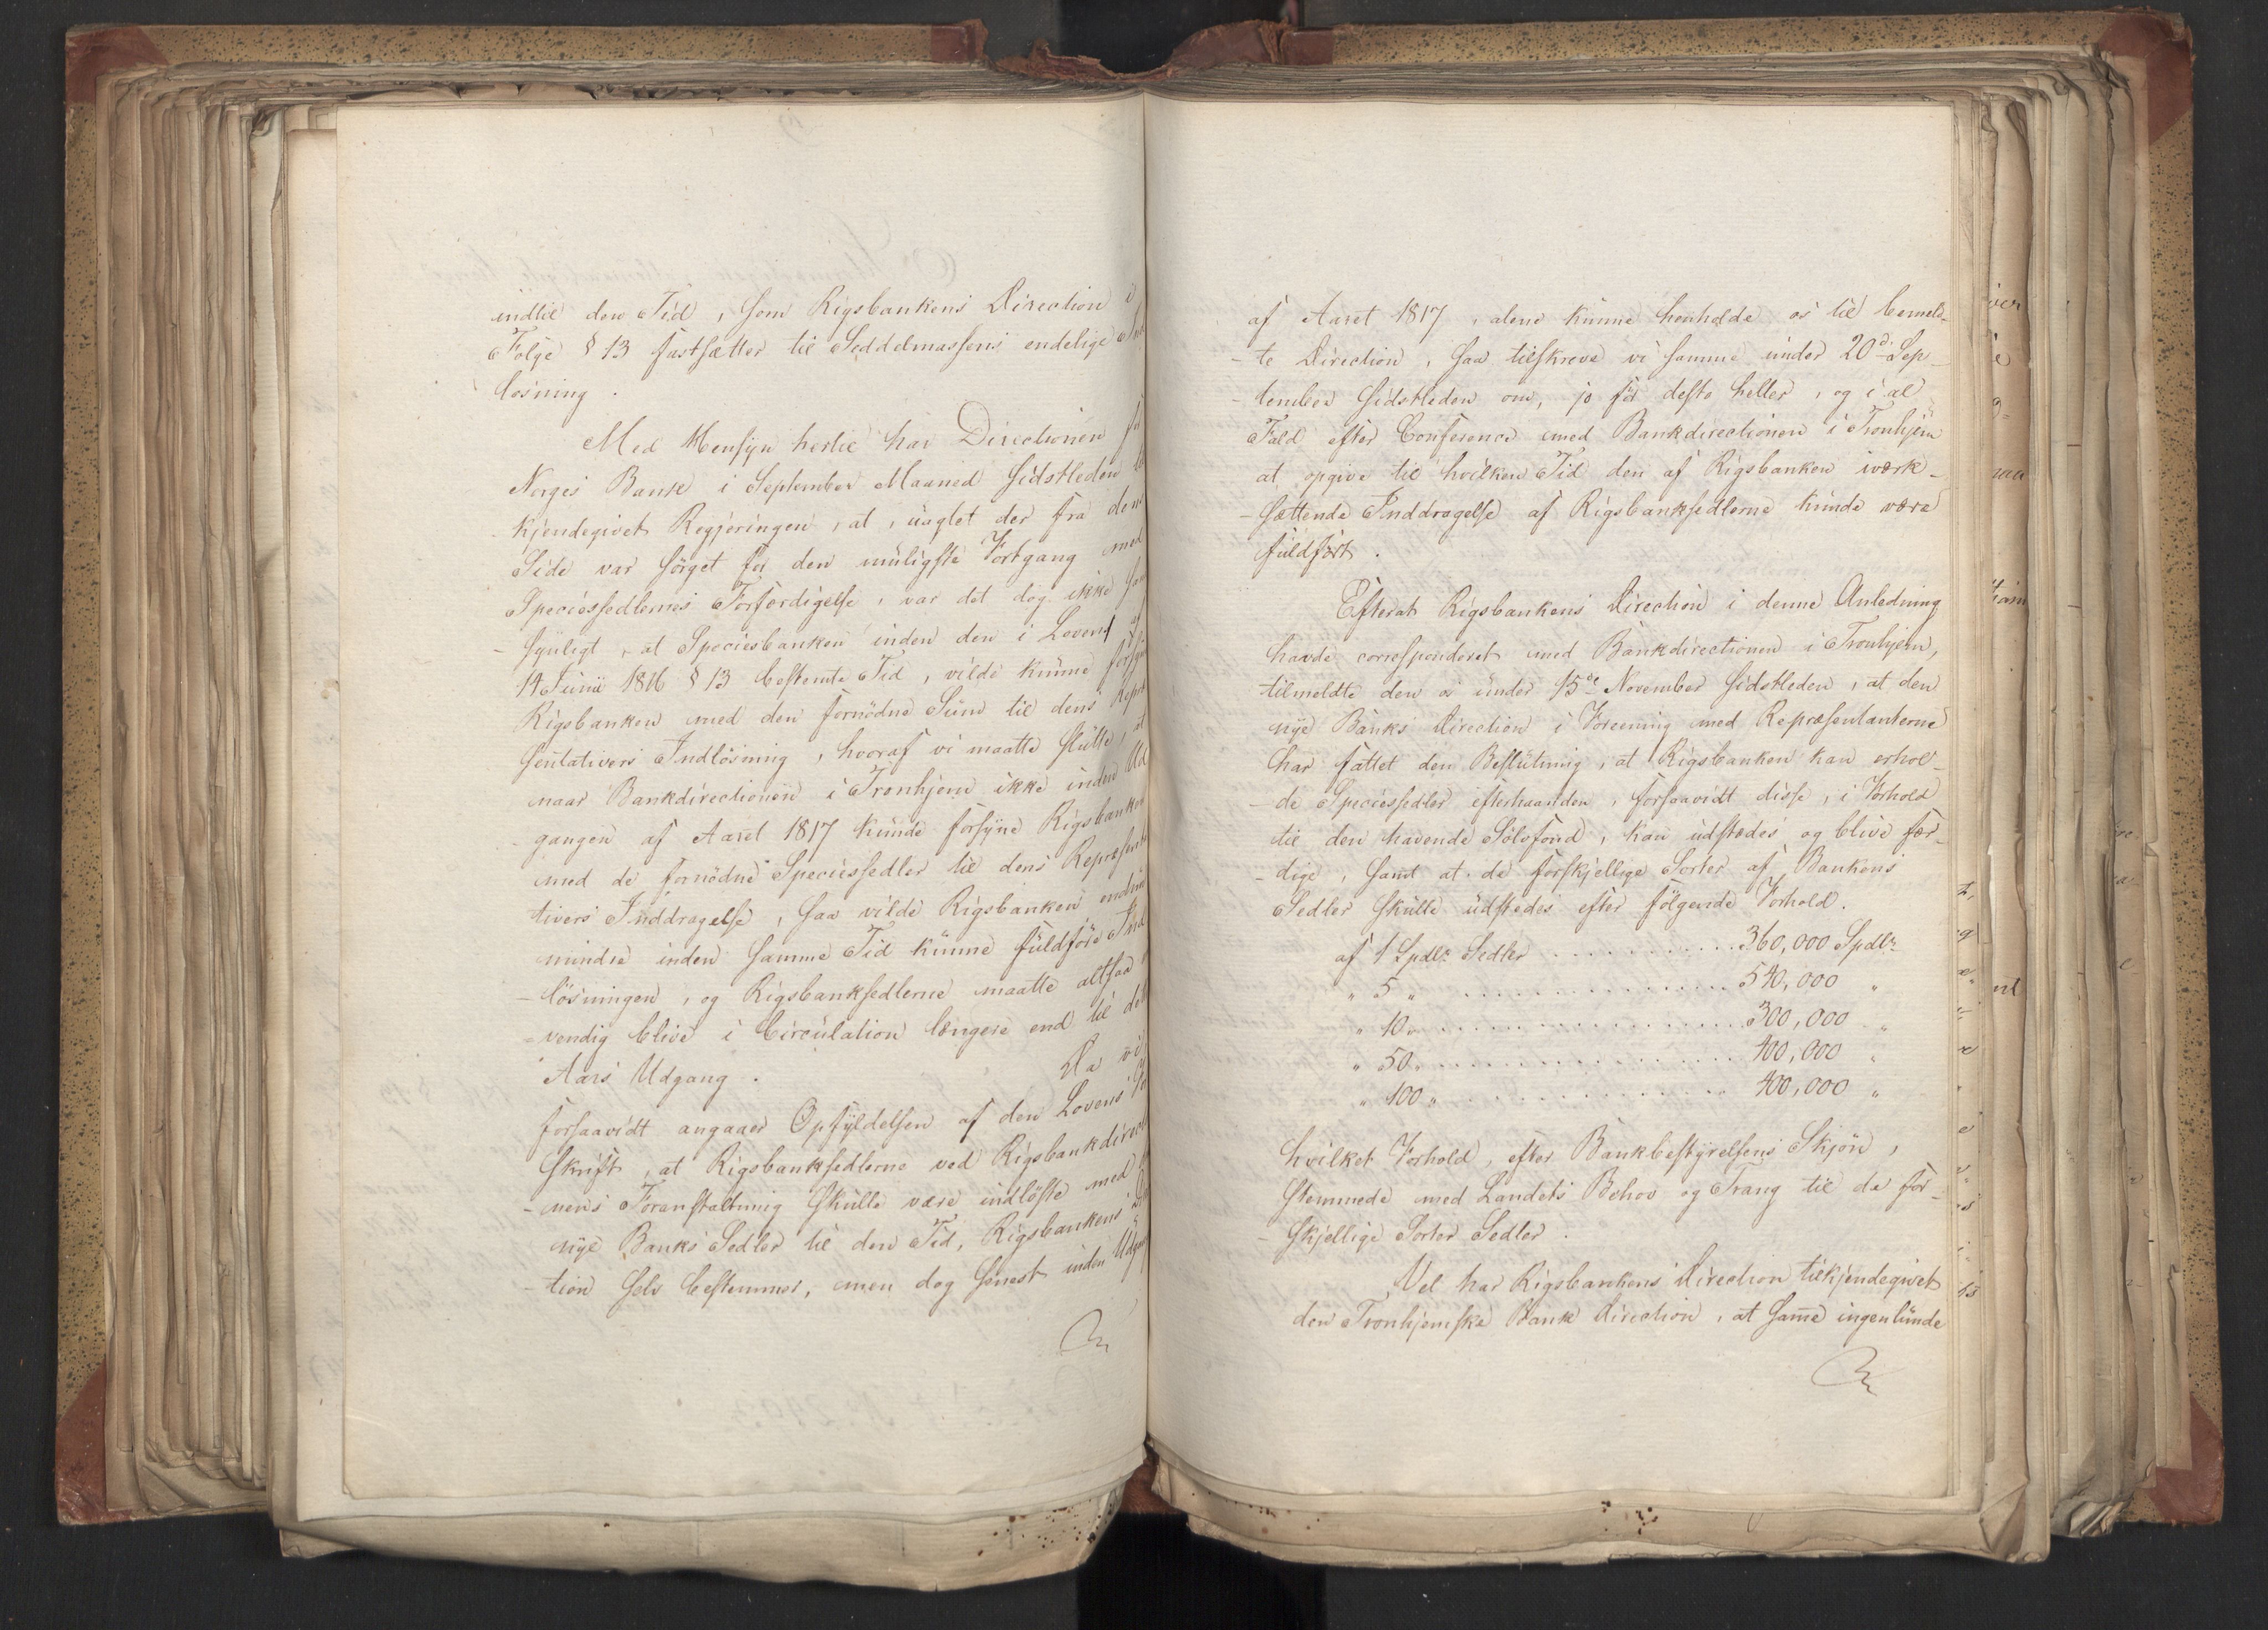 indtil den Tid, som Rigsbankens Direction i
Følge § 13 fastsætter til Seddelmassens endelige Ind
løsning.
Med Hensyn hertil har Directionen for
Norges Bank i September Maaned sidstleden til
kjendegivet Regjeringen, at, uagtet der fra dens
Side var sörget for den muligste Fortgang med
Speciessedlernes Forfærdigelse, var det dog ikke san
-synligt, at Speciesbanken inden den i Loven af
14 Junii 1816 § 13 bestemte Tid, vilde kunne forsyne
Rigsbanken med den fornödne Sum til dens Repræ
sentativers Indlösning, hvoraf vi maatte slutte, at
naar Bankdirectionen i Tronhjem ikke inden Ud
-gangen af Aaret 1817 kunde forsyne Rigsbanken
med de fornödne Speciessedler til dens Repræsenta
tivers Inddragelse, saa vilde Rigsbanken endnu
mindre inden samme Tid kunne fuldföre Ind
-lösningen, og Rigsbanksedlerne maatte altsaa
-vendig blive i Circulation længere end til det
Aars Udgang.
Da vi
forsaavidt angaaer Opfyldelsen af den Lovens For
skrift, at Rigsbanksedlerne ved Rigsbankdirectio
-nens Foranstaltning skulle være indlöste med
nye Banks Sedler til den Tid, Rigsbankens Direc
-tion selv bestemmer, men dog senest inden Udgangen
af Aaret 1817, alene kunne henholde os til bemeld-
-te Direction, saa tilskreve vi samme under 20de Sep-
-tember sidstleden om, jo för desto heller, og i al
Fald efter Conference med Bankdirectionen i Tronhjem
at opgive til hvilken Tid den af Rigsbanken iværk-
-sættende Inddragelse af Rigsbanksedlerne kunde være
fuldfört.
Efterat Rigsbankens Direction i denne Anledning
havde correspenderet med Bankdirectionen i Tronhjem,
tilmeldte den os under 15de November sidstleden, at den
nye Banks Direction i Foreening med Repræsentanterne
har fattet den Beslutning, at Rigsbanken kan erhol-
-de Speciessedler efterhaanden, forsaavidt disse, i Forhold
til den havende Sölvfond, kan udstædes og blive fær-
-dige, samt at de forskjellige Sorter af Bankens
Sedler skulle udstedes efter fölgende Forhold.
af 1 Spdlr Sedler . . . . . . . . . . . 360,000 Spdlr
" 5 " . . . . . . . . . . . . . . . 540,000 "
" 10 " . . . . . . . . . . . . . . . 300,000 "
" 50 " . . . . . . . . . . . . . . . 400,000 "
" 100 " . . . . . . . . . . . . . . . 400,000 "
hvilket Forhold, efter Bankbestyrelsens Skjön,
stemmede med Landets Behov og Trang til de for-
-skjellige Sorter Sedler.
Vel har Rigsbankens Direction tilkjendegivet
den Tronhjemske Bank Direction, at samme ingenlunde